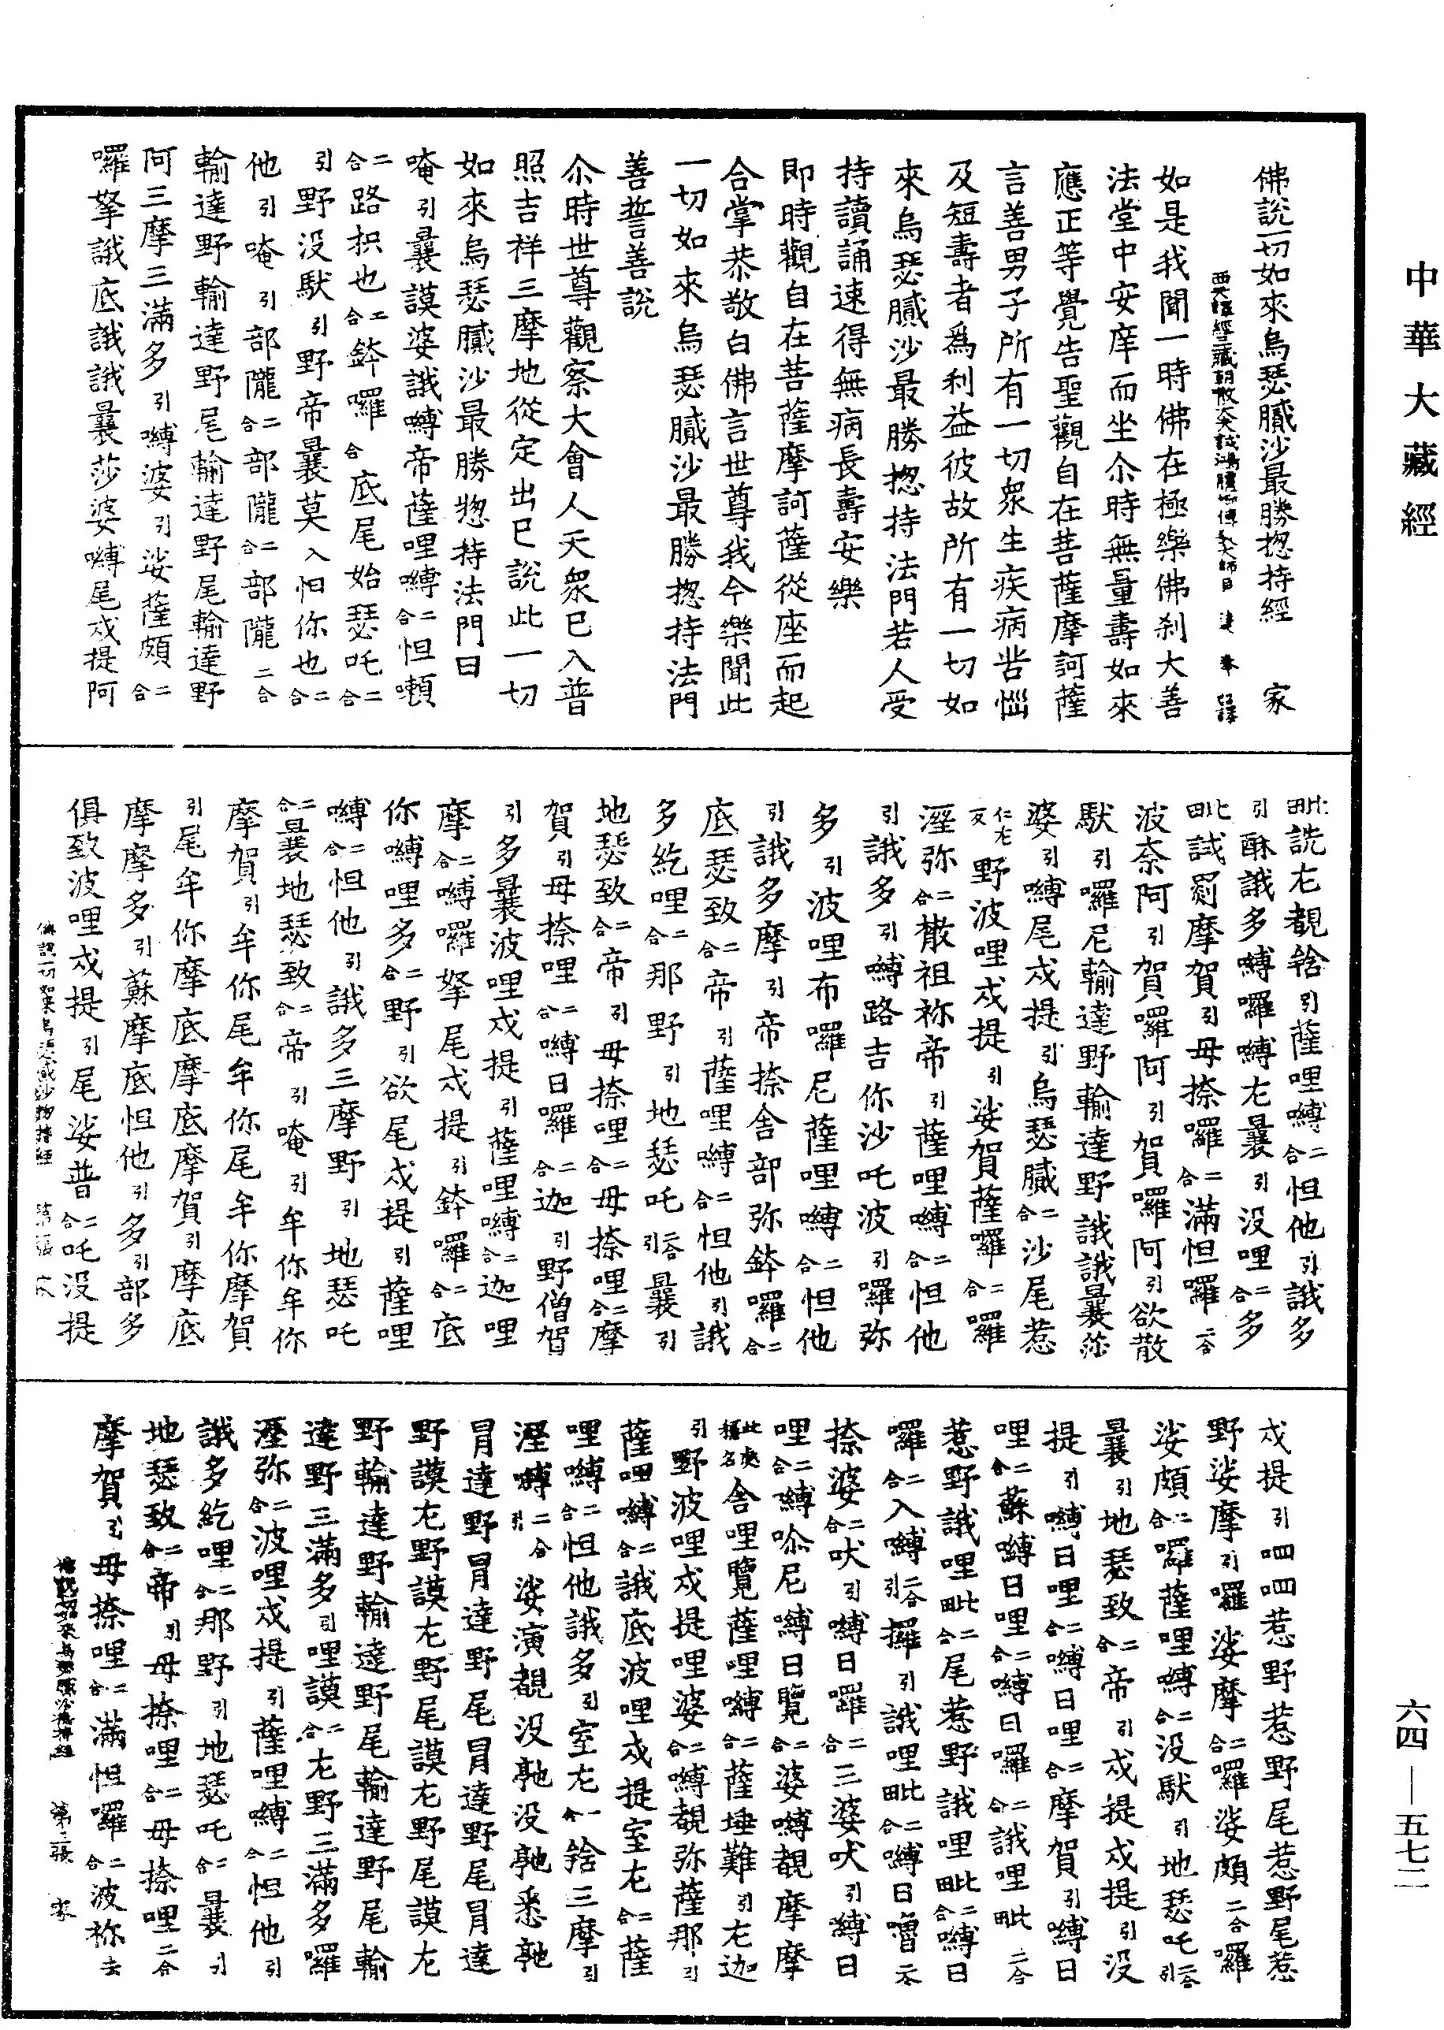 中華大藏經
佛說一切如來烏瑟膩沙最勝總持經　家
西天譯經三藏朝散大夫試鴻臚 傳教大師臣 法 奉 詔譯
如是我聞一時佛在極樂佛剎大善
法堂中安庠而坐尒時無量壽如來
應正等覺告聖觀自在菩薩摩訶薩
言善男子所有一切眾生疾病苦惱
及短壽者為利益彼故所有一切如
來烏瑟膩沙最勝揔持法門若人受
持讀誦速得無病長壽安樂
即時觀自在菩薩摩訶薩從座而起
合掌恭敬白佛言世尊我今樂聞此
一切如來烏瑟膩沙最勝揔持法門
善誓善說
尒時世尊觀察大會人天眾已入普
照吉祥三摩地從定出已說此一切
如來烏瑟膩沙最勝惣持法門曰
唵引曩謨婆誐嚩帝薩哩嚩二合怛囕
二合路枳也二合鉢囉合底尾始瑟吒二合
引野沒馱引野帝曩莫入怛你也二合
他引唵引部隴二合部隴二合部隴二合
輸達野輸達野尾輸達野尾輸達野
阿三摩三滿多引嚩婆引娑薩頗二合
囉拏誐底誐誐曩莎婆嚩尾戍提阿
毗詵左覩𦤀引薩哩嚩二合怛他引誐多
引酥誐多嚩囉嚩左曩引沒哩二合多
毗試罽摩賀引毋捺囉二合滿怛囉二合
波奈阿引賀囉阿引賀囉阿引欲散
馱引囉尼輸達野輸達野誐誐曩莎
婆引嚩尾戍提引烏瑟膩二合沙尾惹
仁左反野波哩戍提引娑賀薩囉二合囉
溼弥二合散祖祢帝引薩哩嚩二合怛他
引誐多引嚩路吉你沙吒波引囉弥
多引波哩布囉尼薩哩嚩二合怛他
引誐多摩引帝捺舍部弥鉢囉二合
底瑟致二合帝引薩哩嚩二合怛他引誐
多紇哩二合那野引地瑟吒二合引曩引
地瑟致二合帝引毋捺哩二合毋捺哩二合摩
賀引毋捺哩二合嚩日囉二合迦引野僧賀
引多曩波哩戍提引薩哩嚩二合迦哩
摩二合嚩囉拏尾戍提引鉢囉二合底
你嚩哩多二合野引欲尾戍提引薩哩
嚩二合怛他引誐多三摩野引地瑟吒
二合曩地瑟致二合帝引唵引牟你牟你
摩賀引牟你尾牟你尾牟你摩賀
引尾牟你摩底摩底摩賀引摩底
摩摩多引蘇摩底怛他引多引部多
俱致波哩戍提引尾娑普二合吒沒提
戍提引呬呬惹野惹野尾惹野尾惹
野娑摩引囉娑摩二合囉娑頗二合囉
娑頗二合囉薩哩嚩二合沒馱引地瑟吒二合引
曩引地瑟致二合帝引戍提戍提引沒
提引嚩日哩二合嚩日哩二合摩賀引嚩日
哩二合蘇嚩日哩二合嚩日囉二合誐哩毗二合
惹野誐哩毗二合尾惹野誐哩毗二合嚩日
囉二合入嚩二合引攞引誐哩毗二合嚩日嚕二合
捺婆二合吠引嚩日囉二合三婆吠引嚩日
哩二合嚩尼嚩日覽二合婆嚩覩摩摩
此處稱名舍哩覽薩哩嚩二合薩埵難引左迦
引野波哩戍提哩婆二合嚩覩弥薩那引
薩哩嚩二合誐底波哩戍提室左二合薩
哩嚩二合怛他誐多引室左二合𦤀三摩引
溼嚩二合引娑演覩沒䭾沒䭾悉䭾
冐達野冐達野尾冐達野尾冐達
野謨左野謨左野尾謨左野尾謨左
野輸達野輸達野尾輸達野尾輸
達野三滿多引哩謨二合左野三滿多囉
溼弥二合波哩戍提引薩哩嚩二合怛他引
誐多紇哩二合那野引地瑟吒二合曩引
地瑟致二合帝引毋捺哩二合毋捺哩二合
摩賀引毋捺哩二合滿怛囉二合波祢去
六四—五七二